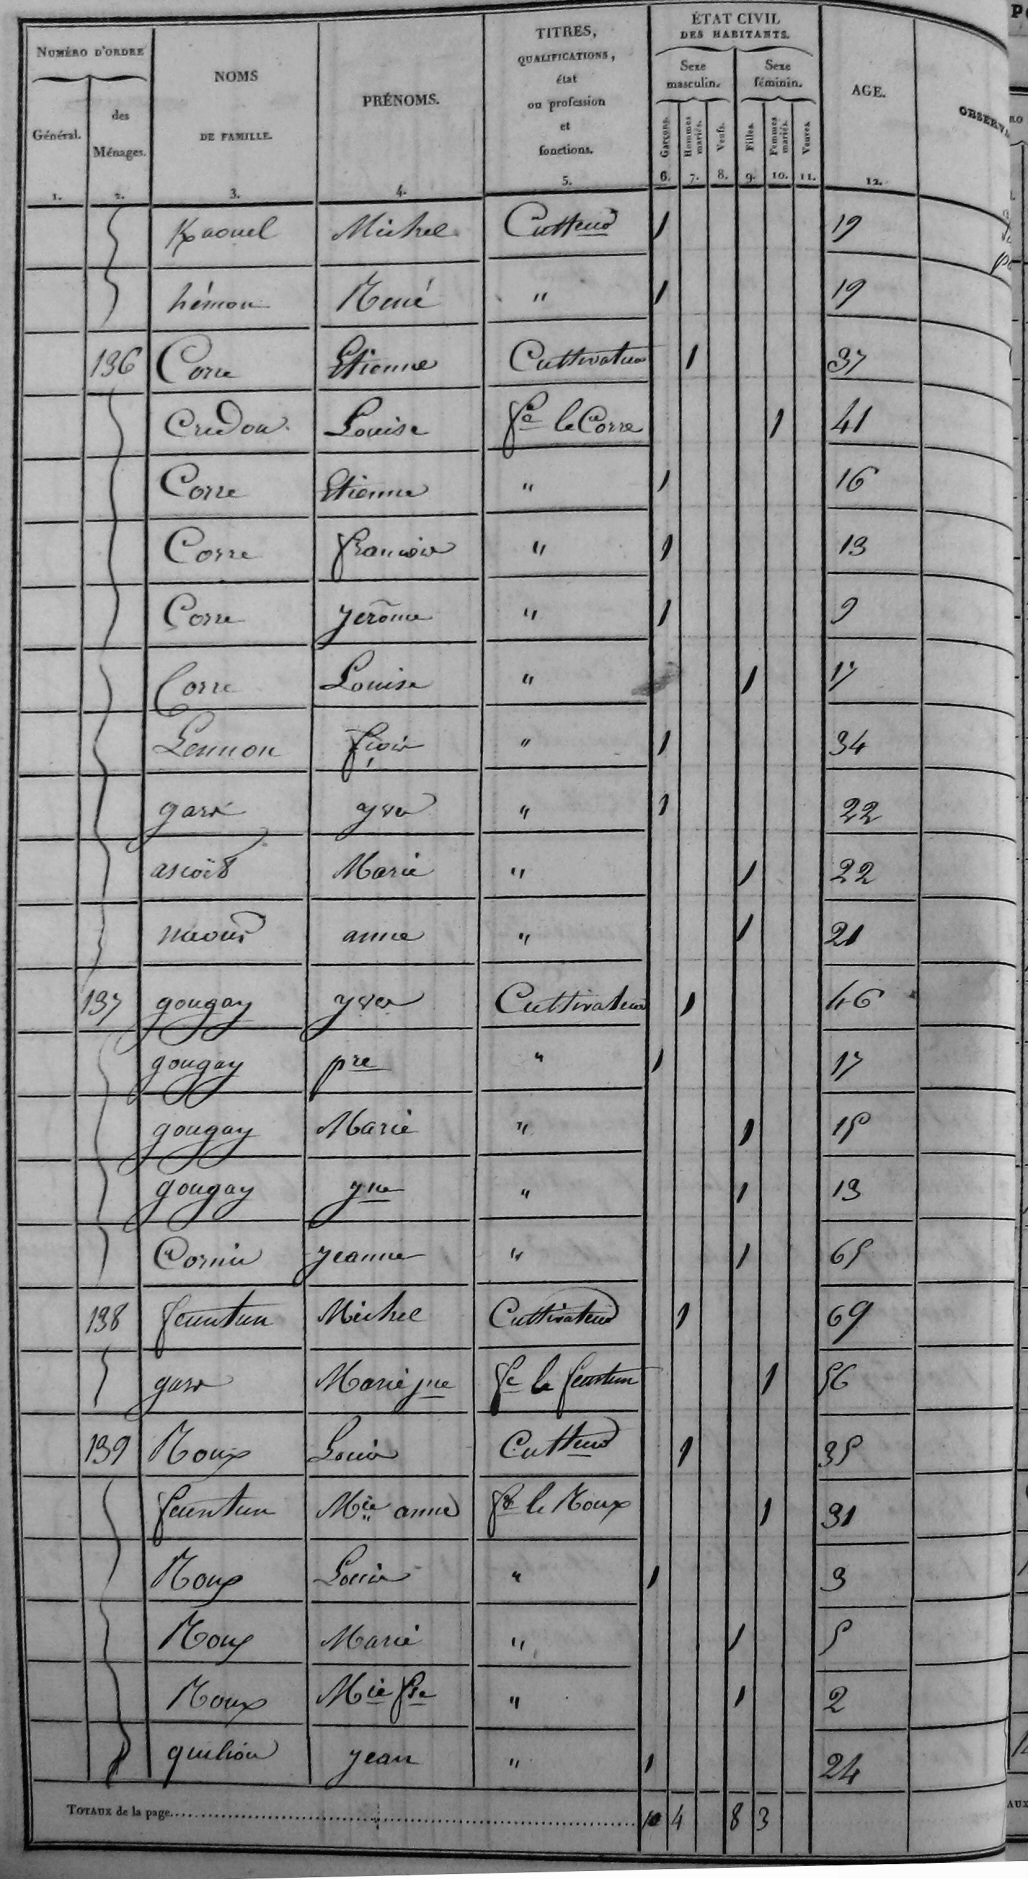 NUMÉRO D'ORDRE
Général.
des Ménages.
NOMS DE FAMILLE.
PRÉNOMS.
TITRES, QUALIFICATIONS, état ou profession et fonctions.
ÉTAT CIVIL DES HABITANTS.
Sexe masculin.
Sexe féminin.
Garçons.
Hommes mariés.
Veufs.
Filles.
Femmes mariés.
Veuves.
AGE.
OBSERV
1. 2. 3. 4. 5. 6. 7. 8. 9. 10. 11. 12.
Kaouel Michel Cultteur 1 19
hémon René " 1 19
136 Corre Etienne Cultivateur 1 37
Credou Louise fe le Corre 1 41
Corre Etienne " 1 16
Corre francois " 1 13
Corre yerôme " 1 9
Corre Louise " 1 17
Lennon " 1 34
garo yves " 1 22
ascoët Marie " 1 22
anne " 1 21
137 gougay yves Cultivateur 1 46
gougay pre " 1 17
gougay Marie " 1 15
gougay yne " 1 13
Cornic yeanne " 1 65
138 feuntun Michel Cultivateur 1 69
garo Marie jne fe le feuntun 1 56
139 Roux Louis Cultteur 1 35
feuntun Mie anne fe le Roux 1 31
Roux Louis " 1 3
Roux Marie " 1 5
Roux Mie fse " 1 2
yean " 1 24
TOTAUX de la page 10 4 8 3